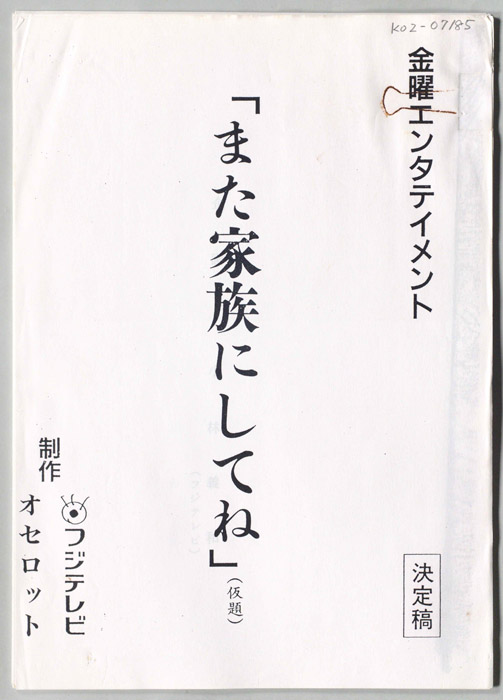 K02-07185
金曜エンタテイメント
「また家族にしてね」(仮題)
決定稿
制作
フジテレビ
オセロット